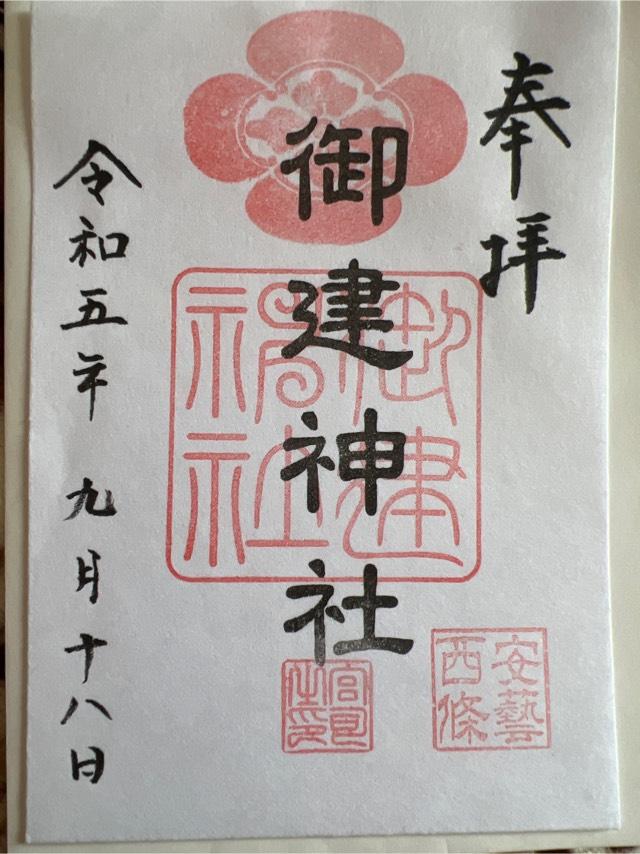 奉拝
御建神社
御建神社
安藝西條
宮司之印
令和五年 九月十八日